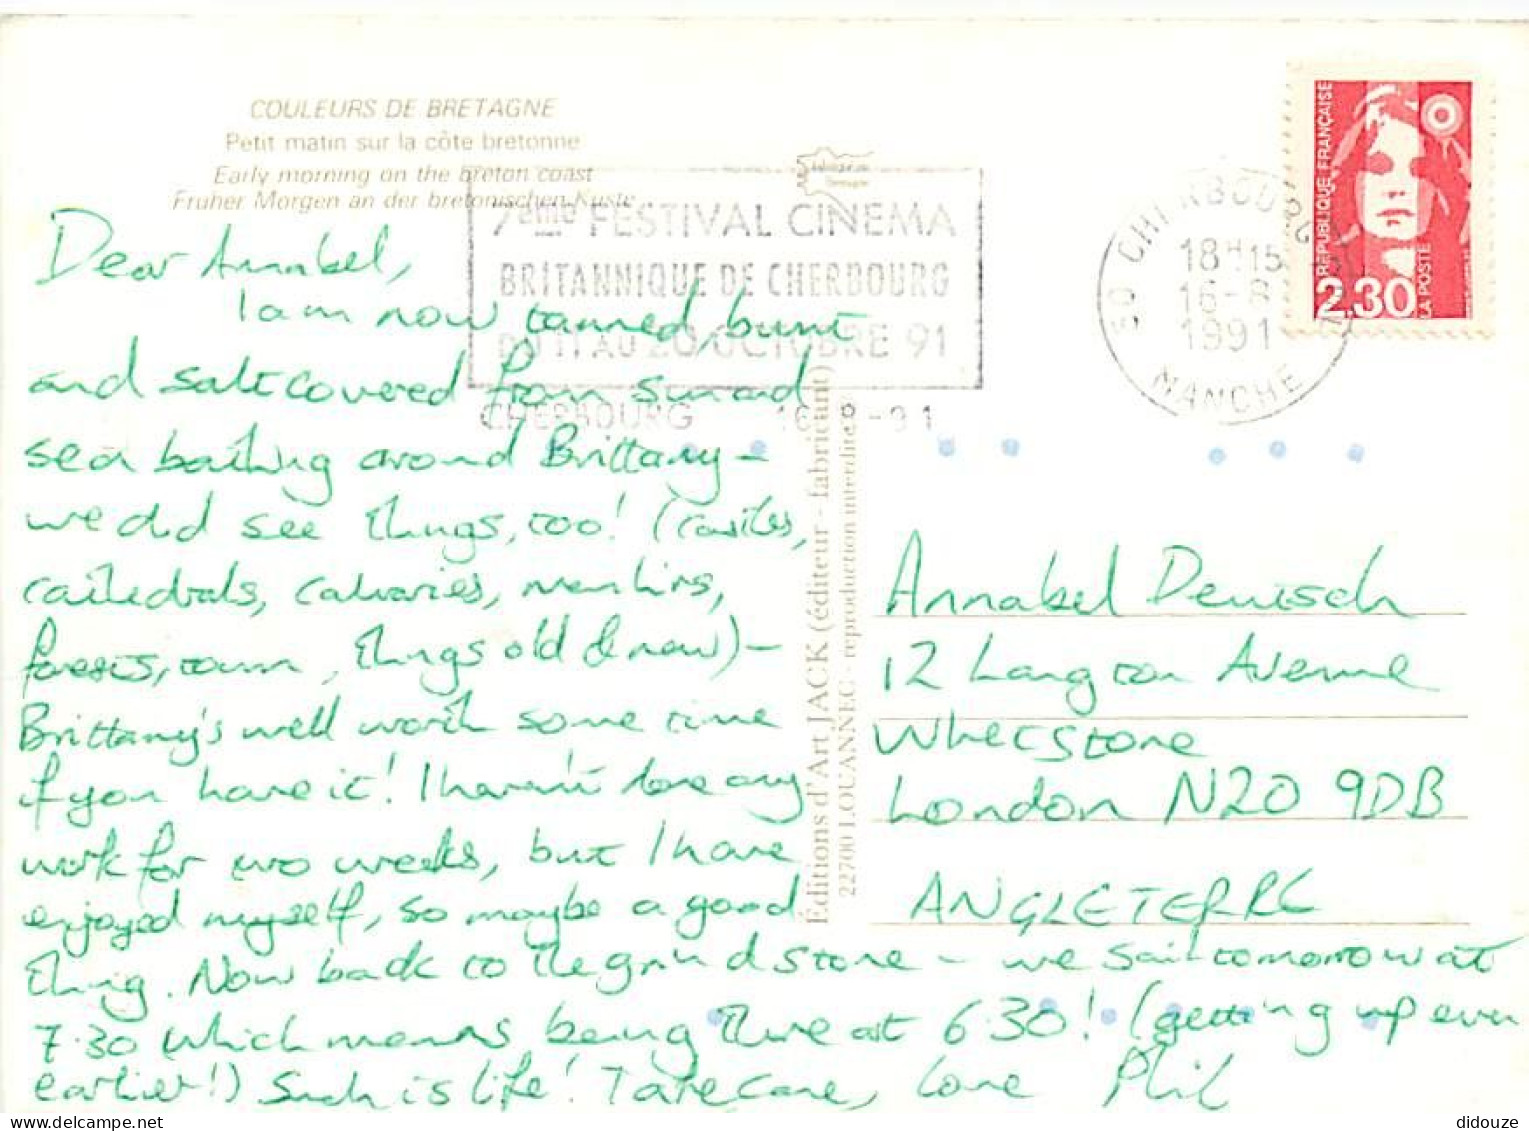 COULEURS DE BRETAGNE
Petit matin sur la côte bretonne
Early morning on the breton coast
Früher Morgen an der bretonischen Küste
7ème FESTIVAL CINEMA
BRITANNIQUE DE CHERBOURG
DU 11 AU 20 OCTOBRE 91
CHERBOURG 16-8-91
50 CHERBOURG
18H15
16-8
1991
MANCHE
REPUBLIQUE FRANÇAISE
2,30
LA POSTE
Dear Annabel,
I am now tanned, burnt
and salt covered from sun and
sea bathing around Brittany –
we did see things, too! (castles,
cathedrals, calvaries, menhirs,
forests, town, things old & new) –
Brittany's well worth some time
if you have it! I haven't done any
work for two weeks, but I have
enjoyed myself, so maybe a good
thing. Now back to the grindstone – we sail tomorrow at
7.30 which means being there at 6.30! (getting up even
earlier!) Such is life! Take care, love Phil
Éditions d'Art JACK (éditeur - fabricant)
22700 LOUANNEC - reproduction interdite
Annabel Deutsch
12 Langton Avenue
Whetstone
London N20 9DB
ANGLETERRE
didouze